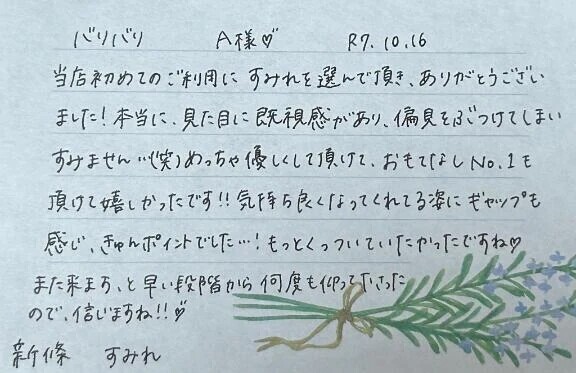 バリバリ A様♡ R7.10.16
当店初めてのご利用に すみれを選んで頂き、ありがとうござい
ました！本当に、見た目に既視感があり、偏見をぶつけてしまい
すみません…(笑)めっちゃ優しくして頂けて、おもてなしNo.1も
頂けて嬉しかったです!!気持ち良くなってくれてる姿にギャップも
感じ、きゅんポイントでした…！もっとくっついていたかったですね♡
また来ます、と早い段階から何度も仰って下さった
ので、信じますね!!♡
新條 すみれ